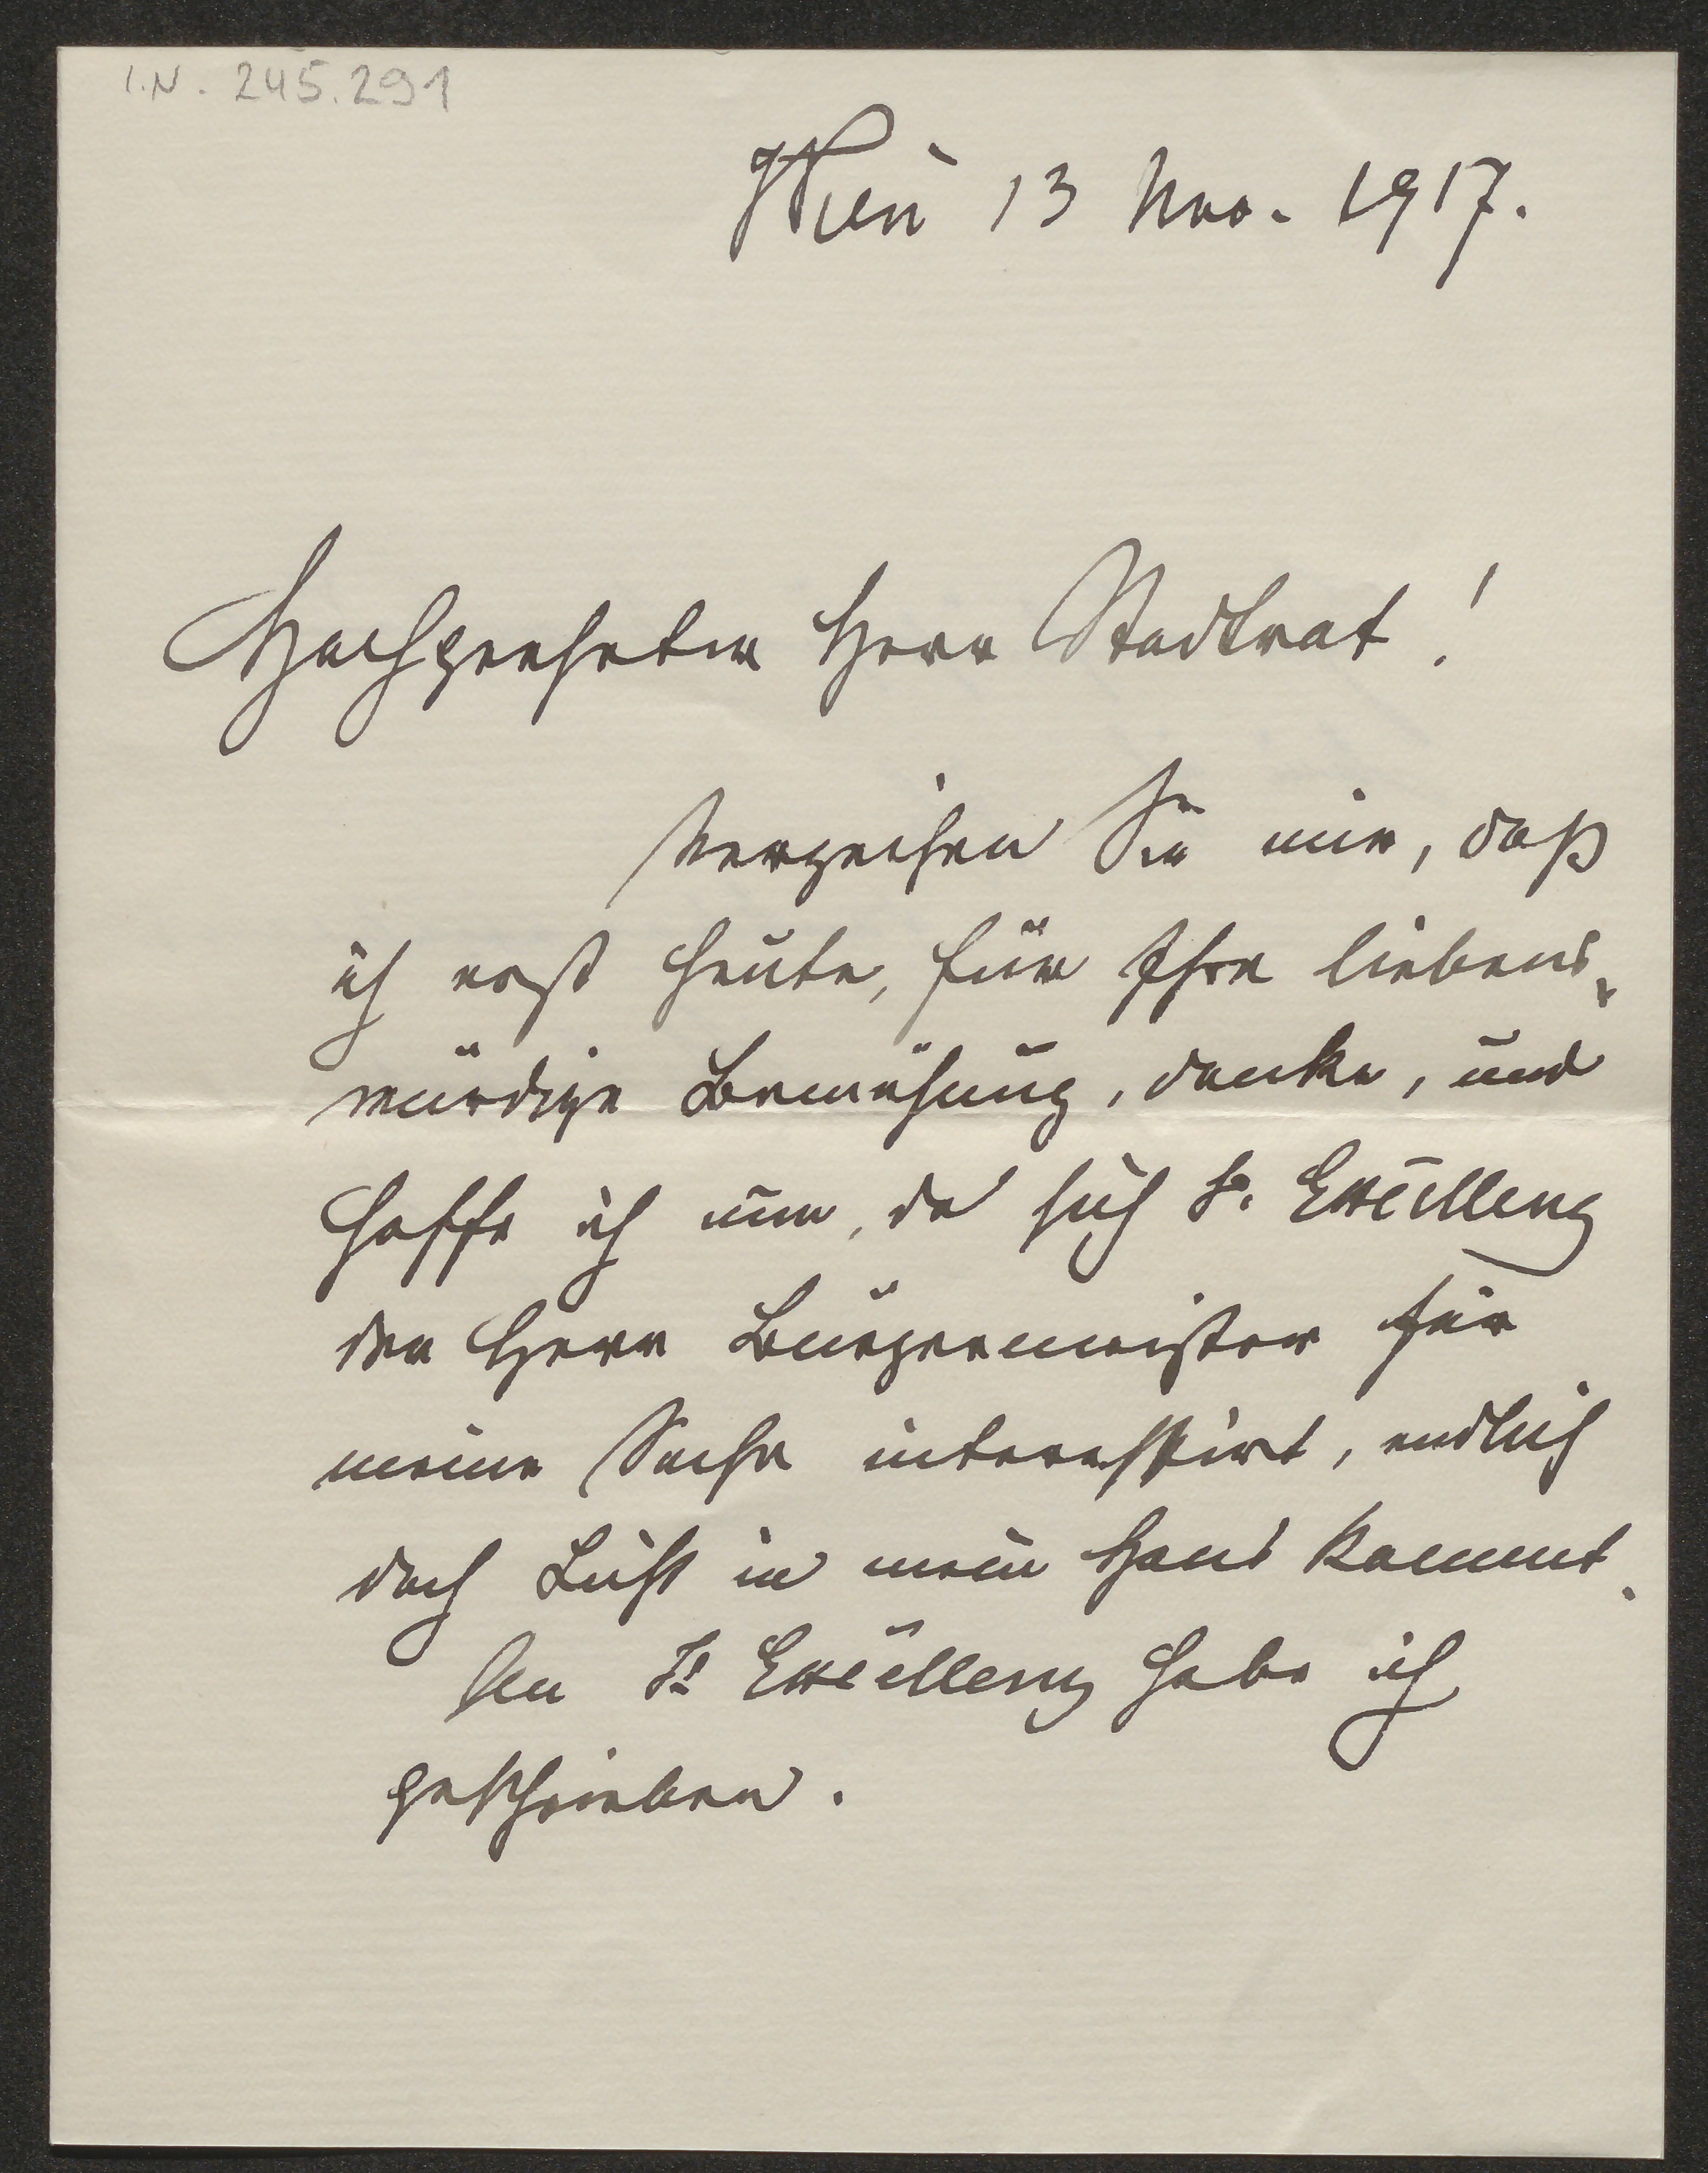 I.N. 245.291
Wien 13 Nov. 1917.
Hochgeehrter Herr Stadtrat!
Verzeihen Sie mir, daß
ich erst heute, für Ihre liebens„
würdige Bemühung, danke, und
hoffe ich nun, da sich S. Exzelleng
der Herr Bürgermeister für
meine Sache interessirt, endlich
doch Licht in mein Haus kommt.
An Sr Exzelleng habe ich
geschrieben.